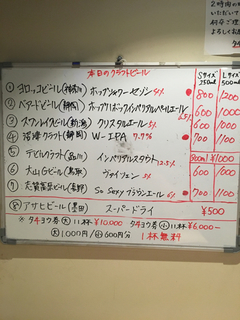 本日のクラフトビール
Sサイズ 250ml
Lサイズ 500ml
① ヨロッコビール(神奈川) ホップシャワーセゾン 5% 800 1200
② ベアードビール(静岡) ホップハボックインペリアルペールエール 6.5% 600 1000
③ スワンレイクビール(新潟) クリスタルエール 5% 600 1000
④ 沼津クラフト(静岡) W-IPA 7.7% 700 1100
⑤ デビルクラフト(品川) インペリアルスタウト 12.5% 1000
⑥ 大山Gビール(鳥取) ヴァイツェン 5% 600 1000
⑦ 志賀高原ビール(長野) So Sexy ブラウンエール 700 1100
⑧ アサヒビール(墨田) スーパードライ ¥500
※ タキヨウ券 大 11杯 ¥10,000 タキヨウ券 小 11杯 ¥6,000-
大 1,000円/小 600円分 1杯無料
2時間の